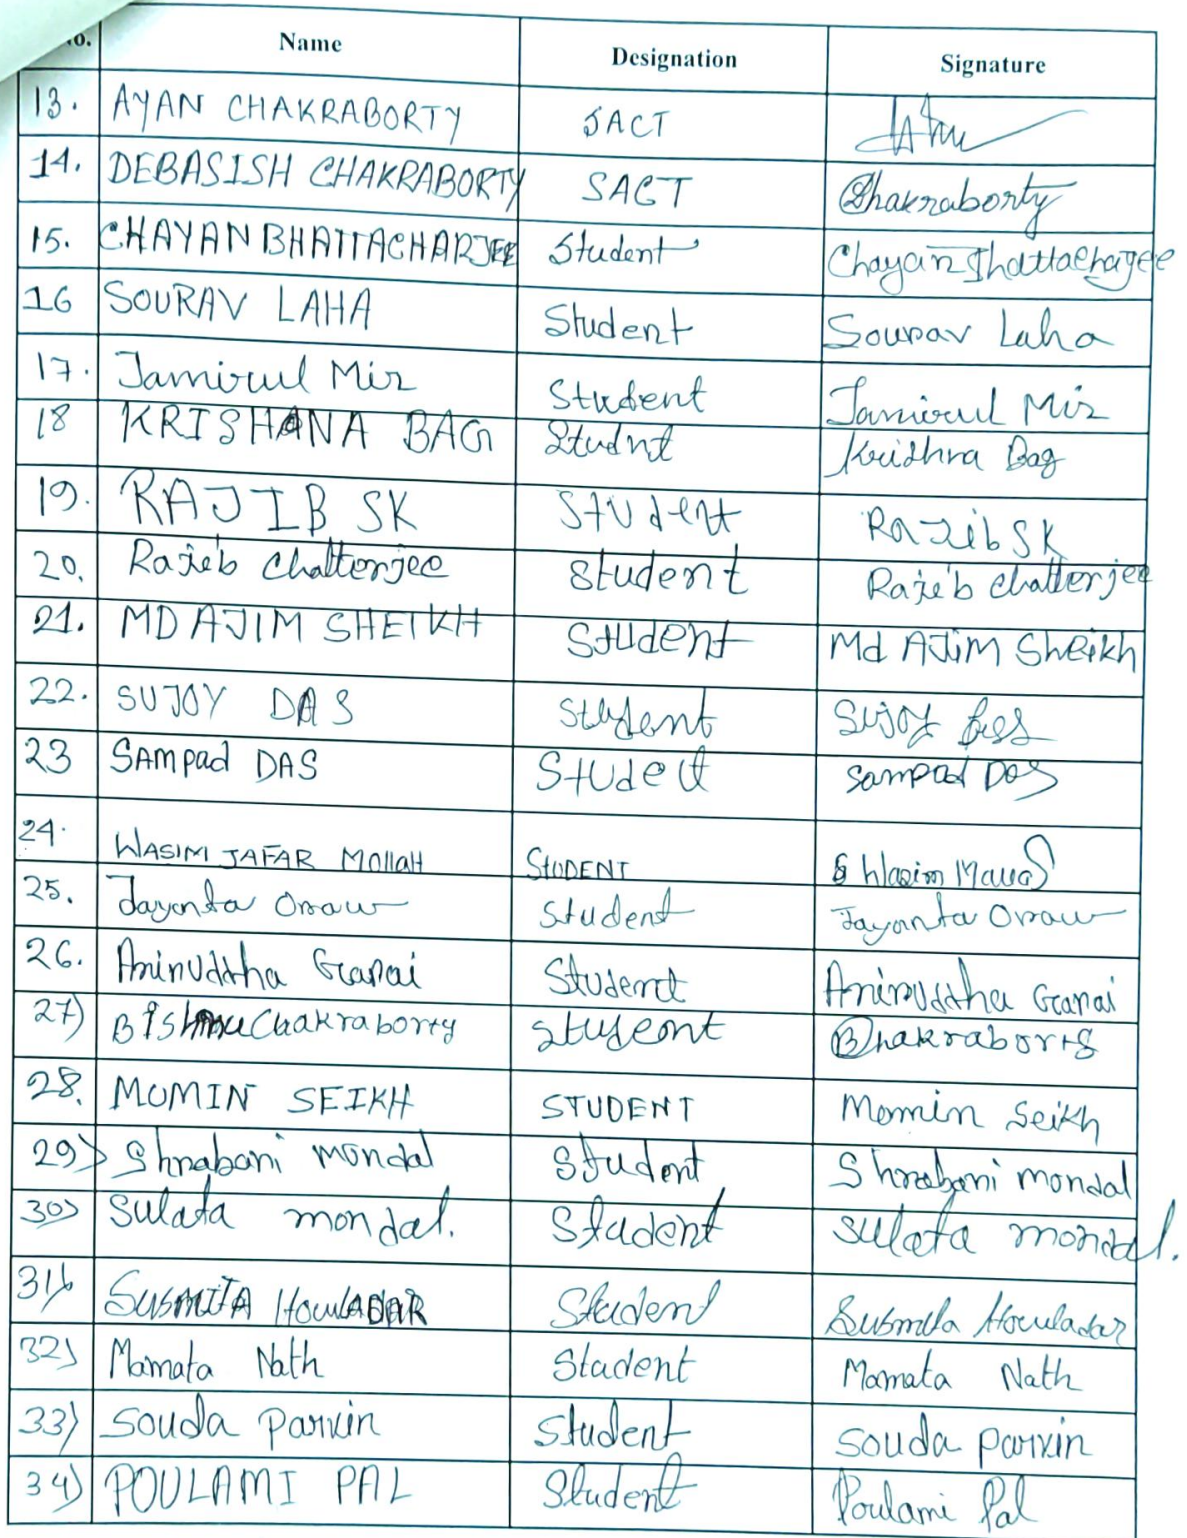 o. Name Designation Signature
13. AYAN CHAKRABORTY SACT
14. DEBASISH CHAKRABORTY SACT Chakraborty
15. CHAYAN BHATTACHARJEE Student Chayan Bhattacharjee
16 SOURAV LAHA Student Sourav Laha
17. Jamirul Mir Student Jamirul Mir
18 KRISHANA BAG Studnt Krishna Bag
19. RAJIB SK Student Rajib SK
20. Rajib Chatterjee Student Rajib Chatterjee
21. MD AJIM SHEIKH Student Md AJiM Sheikh
22. SUJOY DAS Student Sujoy Das
23 SAMPad DAS STUdet Sampad Das
24. WASIM JAFAR MOllaH STUDENT Wasim
25. Jayanta Oraw Student Jayanta Oraw
26. Aniruddha Ganai Student Aniruddha Ganai
27) Bishnu Chakraborty Student Bhakraborty
28. MOMIN SEIKH STUDENT Momin Seikh
29) Shrabani mondal Student Shrabani mondal
30) Sulata mondal. Student sulata mondal.
31) SUSMITA HOWLADAR Student Susmita Howladar
32) Mamata Nath Student Mamata Nath
33) Souda Parvin Student Souda Parvin
34) POULAMI PAL Student Poulami Pal